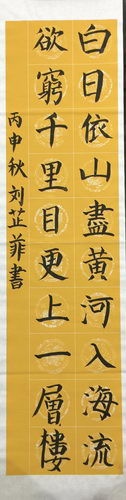 白日依山盡黃河入海流
欲窮千里目更上一層樓
丙申秋刘芷菲書